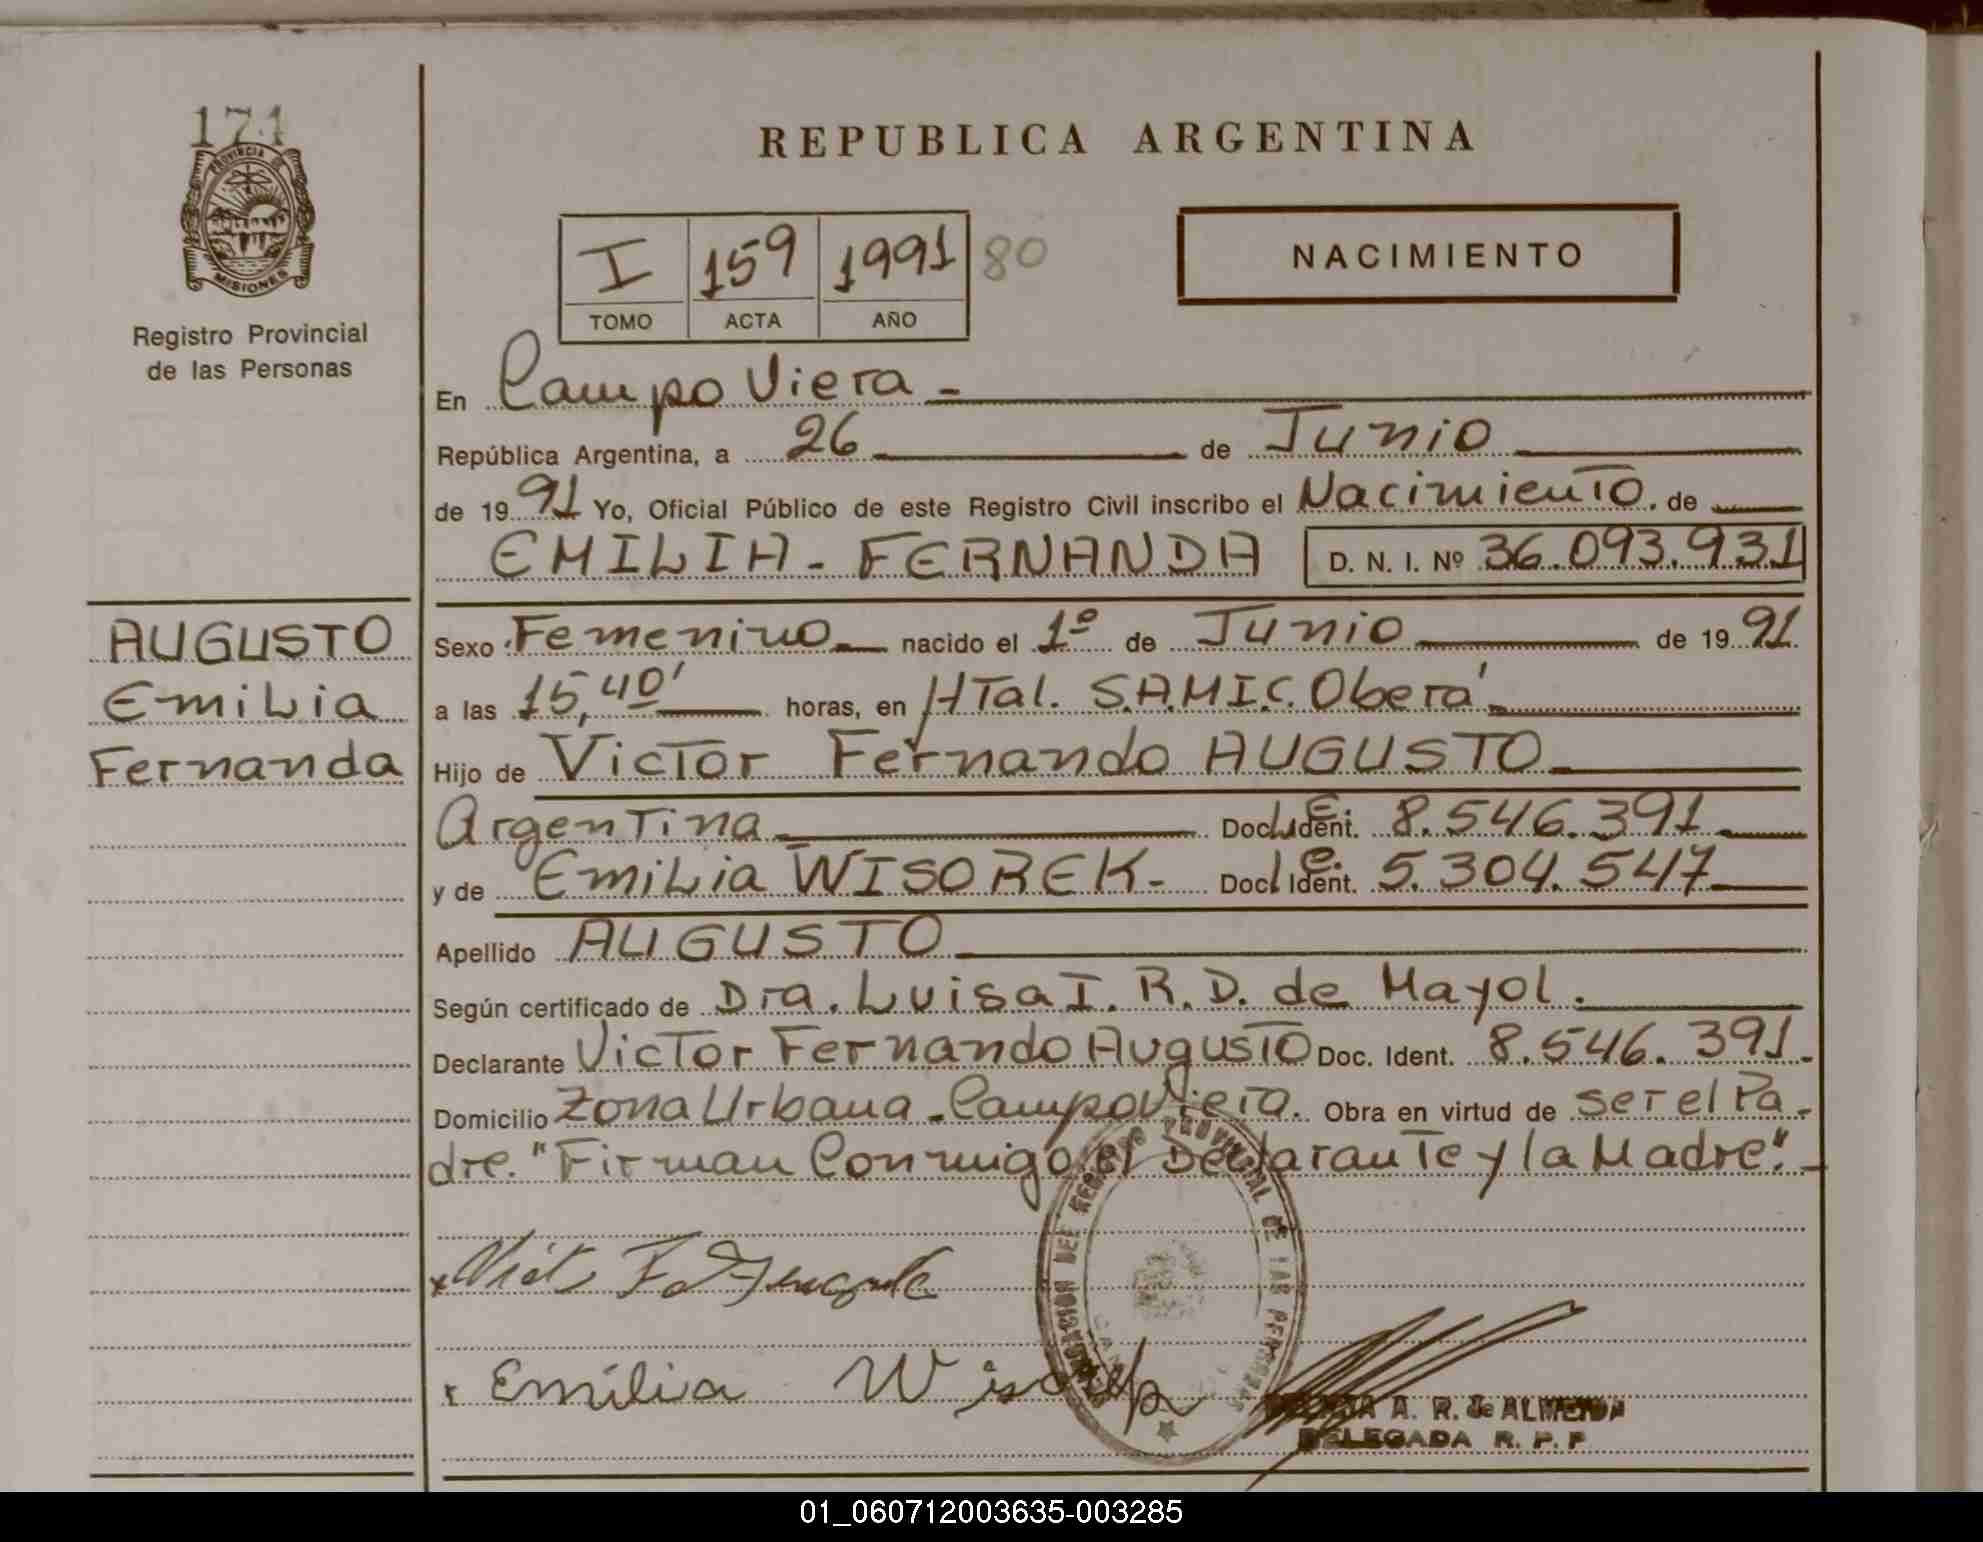 171
PROVINCIA DE
MISIONES
Registro Provincial
de las Personas
REPUBLICA ARGENTINA
I 159 1991 80
TOMO ACTA AÑO
NACIMIENTO
En Campo Viera -
República Argentina, a 26 de Junio
de 1991 Yo, Oficial Público de este Registro Civil inscribo el Nacimiento. de
EMILIA - FERNANDA D. N. I. Nº 36.093.931
AUGUSTO
Emilia
Fernanda
Sexo Femenino nacido el 1º de Junio de 1991.
a las 15,40' horas, en HTal. S.A.M.I.C. Oberá
Hijo de Victor Fernando AUGUSTO
Argentina Doc. Ident. L.E. 8.546.391
y de Emilia WISOREK - Doc. Ident. 5.304.547
Apellido AUGUSTO
Según certificado de Dra. Luisa I. R. D. de Mayol.
Declarante Victor Fernando Augusto Doc. Ident. 8.546.391.
Domicilio Zona Urbana - Campo Viera. Obra en virtud de ser el Pa-
dre. "Firman Conmigo el Declarante y la Madre". -
Emilia
DEL REGISTRO PROVINCIAL DE LAS PERSONAS
A. R. de ALMEIDA
DELEGADA R. P. P
01_060712003635-003285